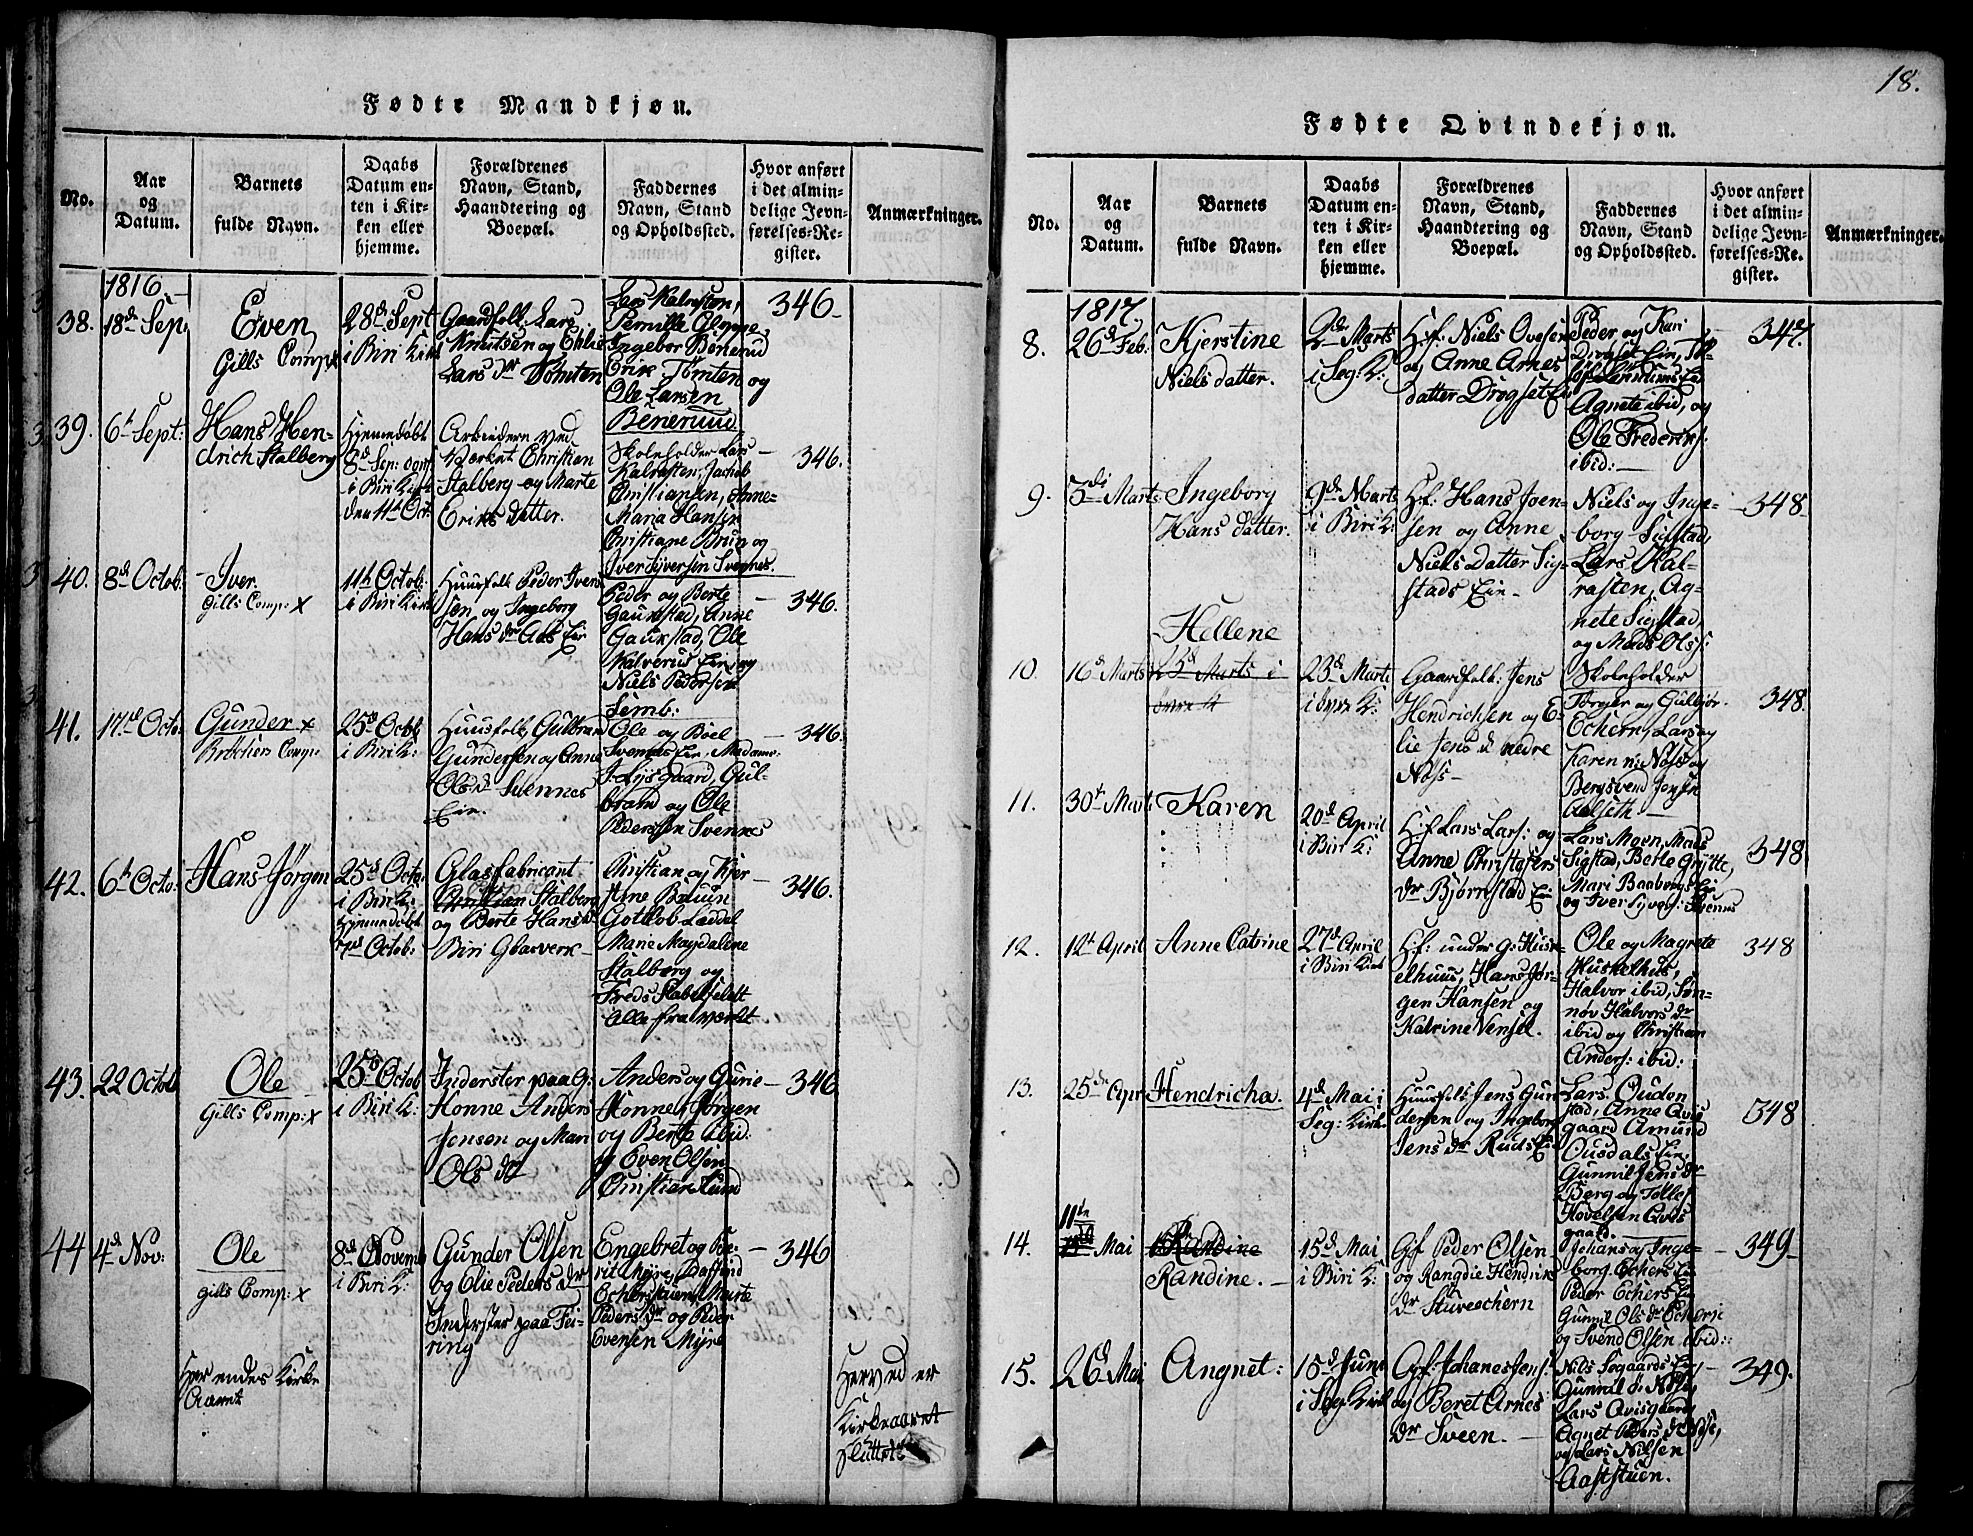 Fødte Mandkjøn.
No.
Aar
og
Datum.
Barnets
fulde Navn.
Daabs
Datum en-
ten i Kir-
ken eller
hjemme.
Forældrenes
Navn, Stand,
Haandtering og
Boepæl.
Faddernes
Navn, Stand
og Opholdssted.
Hvor anført
i det almin-
delige Jevn-
førelses-Re-
gister.
Anmærkninger.
1816
38.
18d Sep.
Even
Gills Comp: x
28d Sept
i Biri Kirk
Gaardfolk Lars
Knutsen og
Lars dr Tomten
Lars Kalrasten,
Pernille Gloppe,
Ingebor Benerud
Erik Tomten og
Ole Larsen
Benerud
346
39.
6t Sept:
Hans Hen-
drich Stalberg
Hjemmedøbt
8d Sep:
i Biri Kirk
den 11t Oct
Arbeideren ved
Værket Christian
Stalberg og Marte
Eriks datter.
Skoleholder Lars
Kalrasten, Jachob
Christiansen, Anne-
Maria Hansen
Christiane Brun og
Iver Syversen Svennes.
346.
40.
8d Octob:
Iver.
Gills Comp: x
11t Octob.
i Biri Kirk
Huusfolk Peder Ivers
sen, og Ingeborg
Hans dr Aas Eie
Peder og Berte
Gaukstad, Anne
Gaukstad, Ole
Kalverus Eie, og
Niels Pedersen
Semb:
346.
41.
17d Octo.
Gunder x
Brøchers Comp:
25d Octob
i Biri K:
Huusfolk Gulbran
Gundersen og Anne
Ols d. Svennes
Eie.
Ole og Boel
Svennes Eie, Madame
Lysgaard, Gul-
brand og Ole
Pedersen Svennes
346.
42.
6t Octo:
Hans Jørgen
25d Octo.
i Biri K:
Hjemmedøbt
7d Octob:
Glasfabricant
Christian Stalberg
og Berte Hans d.
Biri Glasverk
Christian og Kjer-
stine Bruun
Gottlob Laddel
Marie Magdalene
Stalberg og
Freds Stabelfeldt
Alle fra værket
346.
43.
22 Octob
Ole
Gills Comp: x
25d Octob
i Biri K:
Inderster paa G:
Honne Anders
Jensen og Mari
Ols dr
Anders og Gurie
Honne, Jørgen
og Berte ibid.
og Even Olsen
Christian Lund
346
44
4d Nov:
Ole
Gills Comp: x
8d Novemb
i Biri K:
Gunder Olsen
og Olie Peders dr
Inderster paa Fei-
ring
Engebret og Be-
rit Myre,
Echernstuen, Marte
Peders dr og Peder
Evensen Myre
346
Her endes Kirke
Aaret
Herved er
Kirkeaaret
Sluttet
18.
Fødte Qvindekjøn.
No.
Aar
og
Datum.
Barnets
fulde Navn.
Daabs
Datum en-
ten i Kir-
ken eller
hjemme.
Forældrenes
Navn, Stand,
Haandtering og
Boepæl.
Faddernes
Navn, Stand
og Opholdssted.
Hvor anført
i det almin-
delige Jevn-
førelses-Re-
gister.
Anmærkninger.
1817.
8.
26d Feb.
Kjerstine
Niels datter.
2den Marts
i Seg: K:
Hf: Niels Ovesen
og Anne Arnes
datter Drogset Eie
Peder og Kari
Drogset Eie,
Agnete ibid, og
Ole Frederiks:
ibid:
347.
9.
3di Marts
Ingeborg
Hans datter.
9de Marts
i Biri K:
Hf. Hans Joen-
sen og Anne
Niels datter Sig-
stads Eie
Niels og Inge-
borg Sigstad,
Lars Kal-
rasten, Ag-
nete Sigstad,
og Mads Ols:
348
10.
16d Marts
Hellene
15d Marts i
23d Marts
i K:
Gaardfolk: Jens
Hendrichsen og E-
lie Jens d. nedre
Nøss
Skoleholder
Torger og Gulbjør.
Echern, Lars og
Karen n: Nøss og
Bergsvend Jensen
Aalseth
348
11.
30t Mart
Karen
20d April
i Biri K:
Hf Lars Lars: og
Anne Christofers
dr Bjørnstad Eie
Lars Moen, Mads
Sigstad, Berte Grytte,
Mari Baabergs Eie
og Iver Syvers: Svennes
348
12.
12t April
Anne Catrine
27d April
i Biri Kirk
Hf: under G: Husk-
elhuus, Hans Jør-
gen Hansen og
Katrine Vensel.
Ole og Magrete
Huskelhus,
Halvor ibid, Søn-
nov Halvors dr
ibid og Christian
Anders: ibid:
348
13.
25de Apr
Hendricha.
4d Mai i
Seg: Kirke
Huusfolk Jens Gun
dersen og Ingeborg
Jens dr Ruds Eie
Lars Ouden
stad, Anne Qvis
gaard Amund
Ousdals Eie:
Gunnil Jens dr
Berg og Tollef
Hovelsen Qvis
gaard.
348
14.
11te
Mai
Randine
Randine.
15d Mai
i Biri K:
Gf Peder Olsen
og Rangdie Hendrik
dr Stuveechern
Johans og Inge-
borg Echers Eie
Peder Echers Eie
Gunnil Ols dr Echern
og Svend Olsen ibid:
349
15.
26d Mai
Angnet:
15d Juni
i Seg: Kirk
Gf Johanes Jens:
og Beret Arnes
dr Sveen.
Nils Segaards Eie,
Gunnil ø: Nøss,
Lars Qvisgaard
Agnet Peders dr Nøss,
og Lars Nilsen
Aaststuen.
349.